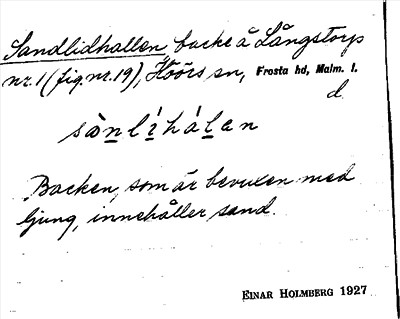 Sandlidhallen, backe å Långstorp
nr. 1 (fig. nr. 19), Höörs sn, Frosta hd, Malm. l.
d.
sȧ̀n̲lí̲hál̲en
Backen, som är bevuxen med
ljung, innehåller sand.
EINAR HOLMBERG 1927